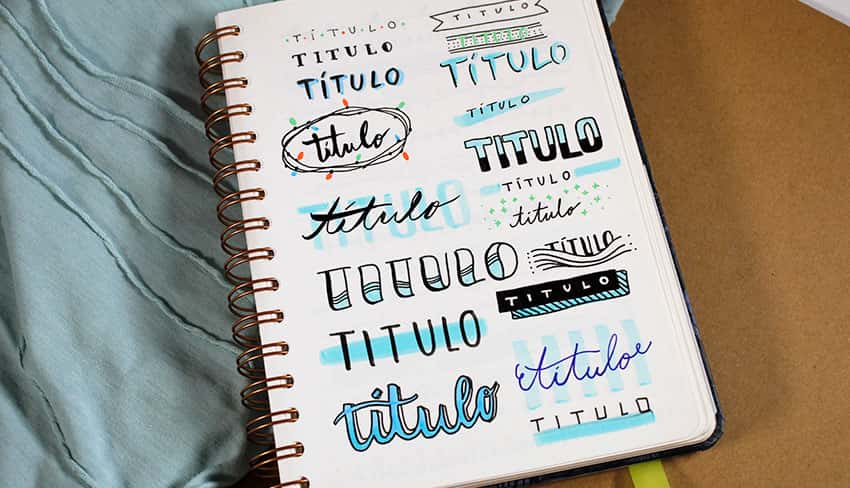 TÍTULO
TITULO
TÍTULO
título
título
TITULO
TITULO
título
TÍTULO
TÍTULO
TÍTULO
TITULO
TÍTULO
título
TÍTULO
TITULO
título
TITULO